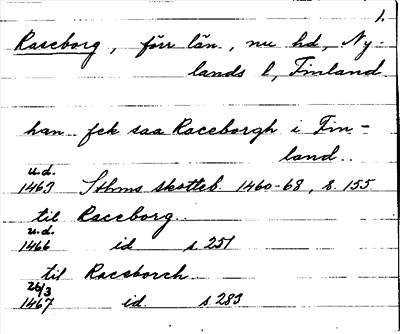 1.
Raseborg, förr län, nu hd, Ny-
lands l, Finland
han fek saa Raceborgh i Fin-
land..
u.d.
1463 Sthms skotteb. 1460-68, s. 155
til Raceborg
u.d.
1466 id s 251
til Raceborch
26/3
1467 id. s 283